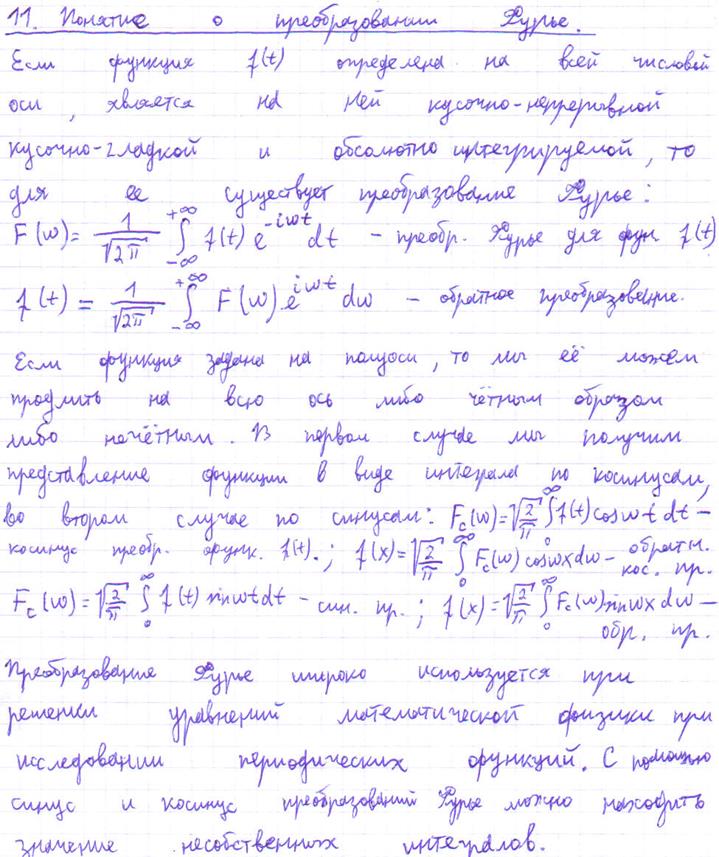 11. Понятие о преобразовании Фурье.
Если функция f(t) определена на всей числовой
оси, является на ней кусочно-непрерывной
кусочно-гладкой и абсолютно интегрируемой, то
для ее существует преобразование Фурье:
F(w) = 1/√2π ∫_{-∞}^{+∞} f(t) e^{-iwt} dt – преобр. Фурье для фун. f(t)
f(t) = 1/√2π ∫_{-∞}^{+∞} F(w) e^{iwt} dw – обратное преобразование.
Если функция задана на полуоси, то мы её можем
продлить на всю ось либо чётным образом
либо нечётным. В первом случае мы получим
представление функции в виде интеграла по косинусам,
во втором случае по синусам: F_c(w) = √2/π ∫_0^∞ f(t) cos wt dt –
косинус преобр. функ. f(t).; f(x) = √2/π ∫_0^∞ F_c(w) cos wx dw – обратн. кос. пр.
F_c(w) = √2/π ∫_0^∞ f(t) sin wt dt – син. пр.; f(x) = √2/π ∫_0^∞ F_c(w) sin wx dw –
обр. пр.
Преобразование Фурье широко используется при
решении уравнений математической физики при
исследовании периодических функций. С помощью
синус и косинус преобразований Фурье можно находить
значение несобственных интегралов.